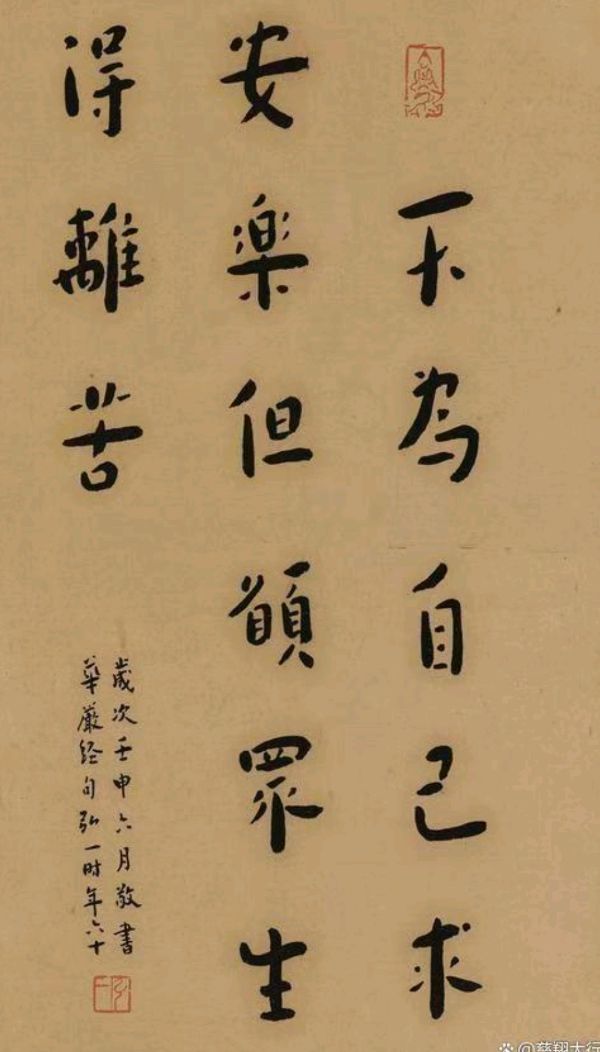 不為自己求
安楽但願眾生
得離苦
歲次壬申六月敬書
華嚴經句弘一時年六十
弘一
@慈翔大行